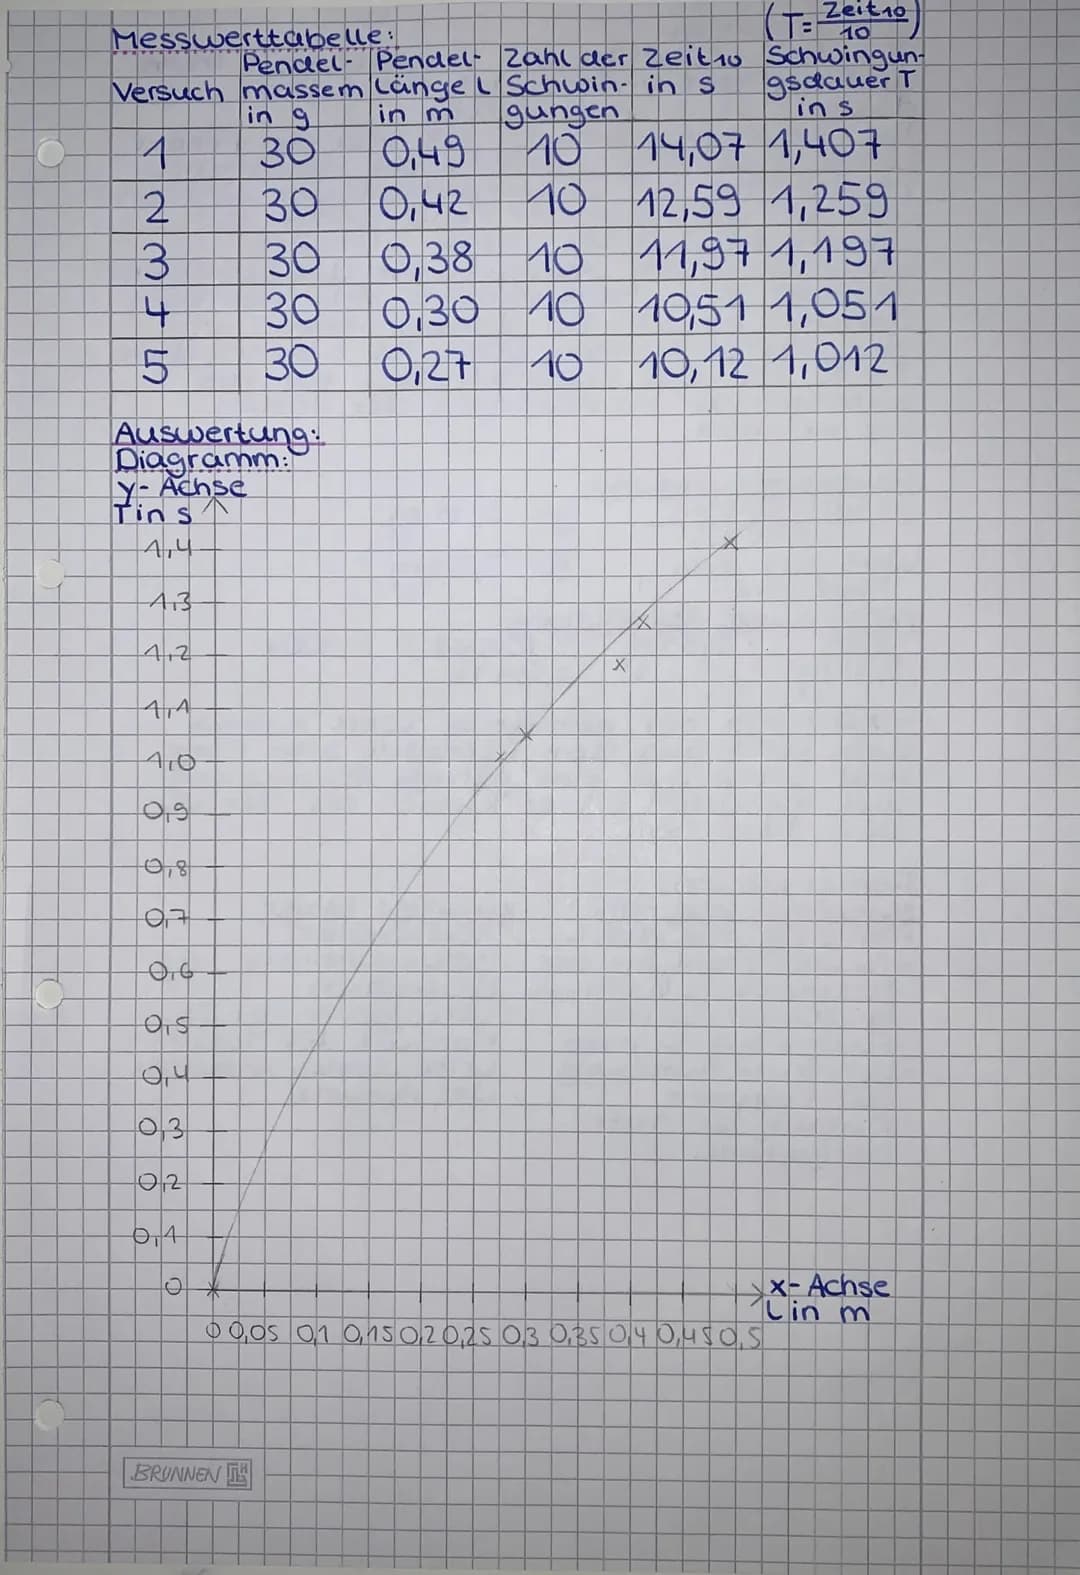 Messwerttabelle:
(T= Zeit10 / 10)
Versuch | Pendel-massem in g | Pendel-Länge l in m | Zahl der Schwin-gungen | Zeit10 in s | Schwingun-gsdauer T in s
1 30 0,49 10 14,07 1,407
2 30 0,42 10 12,59 1,259
3 30 0,38 10 11,97 1,197
4 30 0,30 10 10,51 1,051
5 30 0,27 10 10,12 1,012
Auswertung:
Diagramm:
y-Achse
T in s
1,4
1,3
1,2
1,1
1,0
0,9
0,8
0,7
0,6
0,5
0,4
0,3
0,2
0,1
0
x-Achse
L in m
0 0,05 0,1 0,15 0,2 0,25 0,3 0,35 0,4 0,45 0,5
BRUNNEN